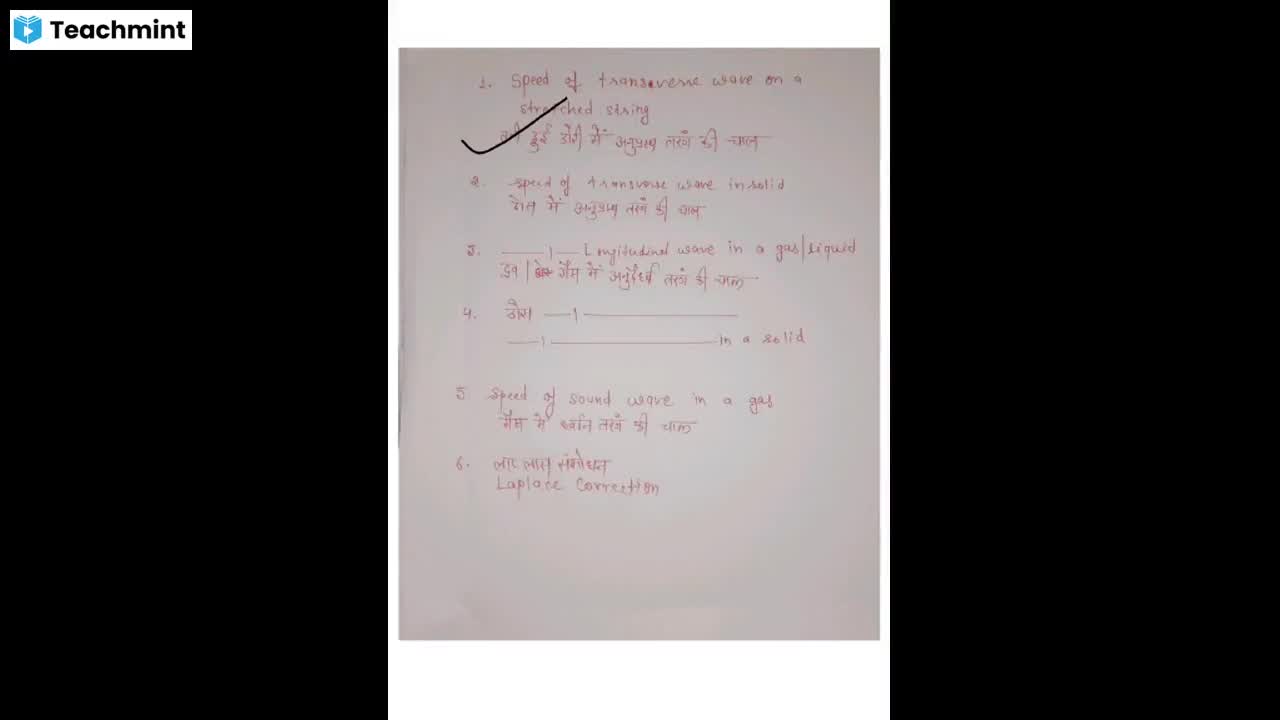 Teachmint
1. Speed of transverse wave on a
stretched string
तनी हुई डोरी में अनुप्रस्थ तरंग की चाल
2. speed of transverse wave in solid
में अनुप्रस्थ तरंग की चाल
3. ——— 1 — Longitudinal wave in a gas/liquid
द्रव / गैस में अनुदैर्ध्य तरंग की चाल
4. ठोस ——1————————
——1———————— in a solid
5 speed of sound wave in a gas
गैस में ध्वनि तरंग की चाल
6. लाप्लास संशोधन
Laplace Correction